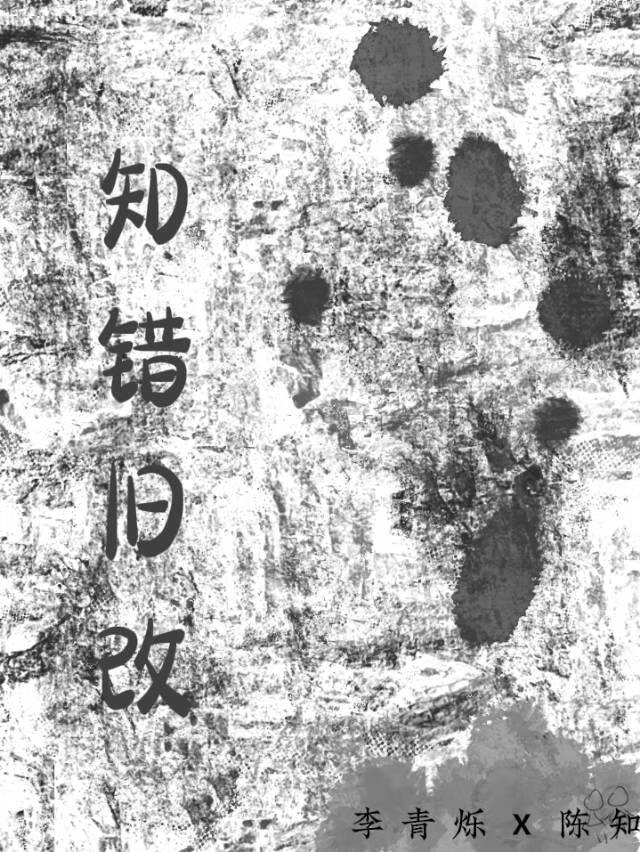 知错旧改
李青烁 x 陈知